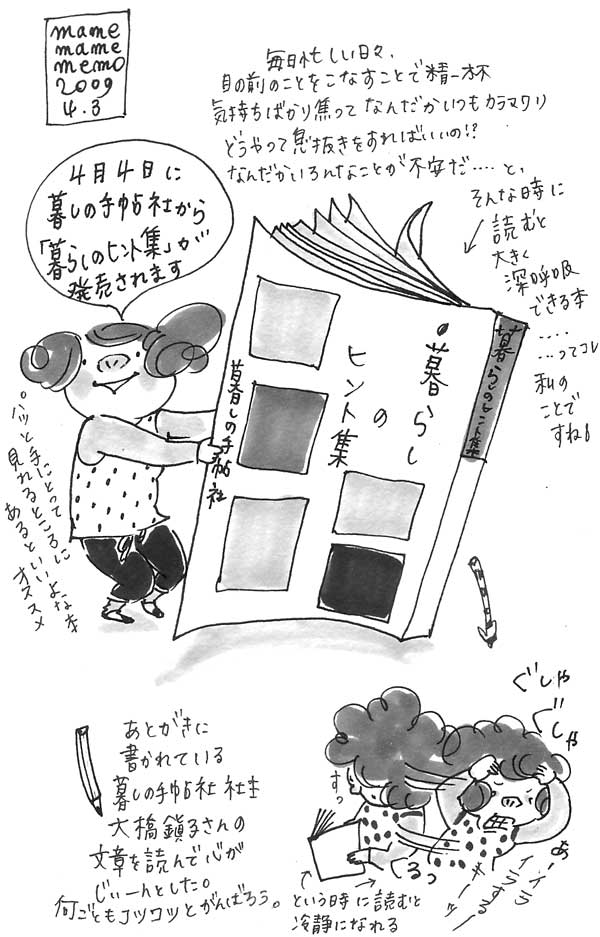 mame
mame
memo
2009
4.3
毎日忙しい日々、
目の前のことをこなすことで精一杯
気持ちばかり焦ってなんだかいつもカラマワリ
どうやって息抜きをすればいいの!?
なんだかいろんなことが不安だ‥‥と、
そんな時に
読むと
大きく
深呼吸
できる本
‥‥
…ってコレ
私の
ことで
すね!
4月4日に
暮しの手帖社から
「暮らしのヒント集」が
発売されます
暮らしのヒント集
暮らし
の
ヒント集
暮しの手帖社
パッと手にとって
見れるところに
あるといいよな本
オススメ
あとがきに
書かれている
暮しの手帖社 社主
大橋鎭子さんの
文章を読んで心が
じぃーんとした。
何ごともコツコツとがんばろう。
ぐしゃ
ぐしゃ
すっ
くるっ
あーイライラする
キーッ
という時に読むと
冷静になれる